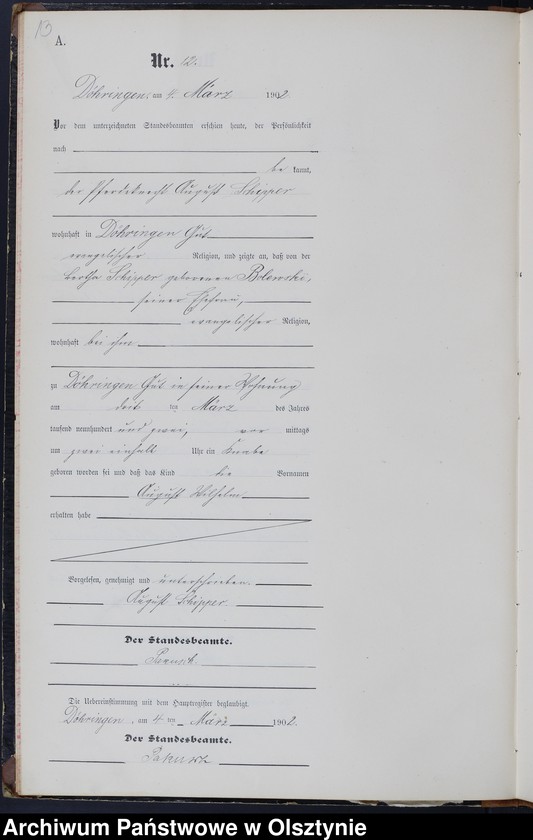 13
A.
Nr. 12.
Döhringen, am 4. März 1902
Vor dem unterzeichneten Standesbeamten erschien heute, der Persönlichkeit
nach
be kannt,
der Pferdeknecht August Schipper
wohnhaft in Döhringen Gut
evangelischer Religion, und zeigte an, daß von der
Bertha Schipper geborenen
seiner Ehefrau,
evangelischer Religion,
wohnhaft bei ihm
zu Döhringen Gut in seiner Wohnung
am ten März des Jahres
tausend neunhundert und zwei, vor mittags
um zwei einhalb Uhr ein Knabe
geboren worden sei und daß das Kind die Vornamen
August Wilhelm
erhalten habe
Vorgelesen, genehmigt und unterschrieben.
August Schipper.
Der Standesbeamte.
Die Uebereinstimmung mit dem Hauptregister beglaubigt.
Döhringen, am 4 ten März 1902.
Der Standesbeamte.
Archiwum Państwowe w Olsztynie